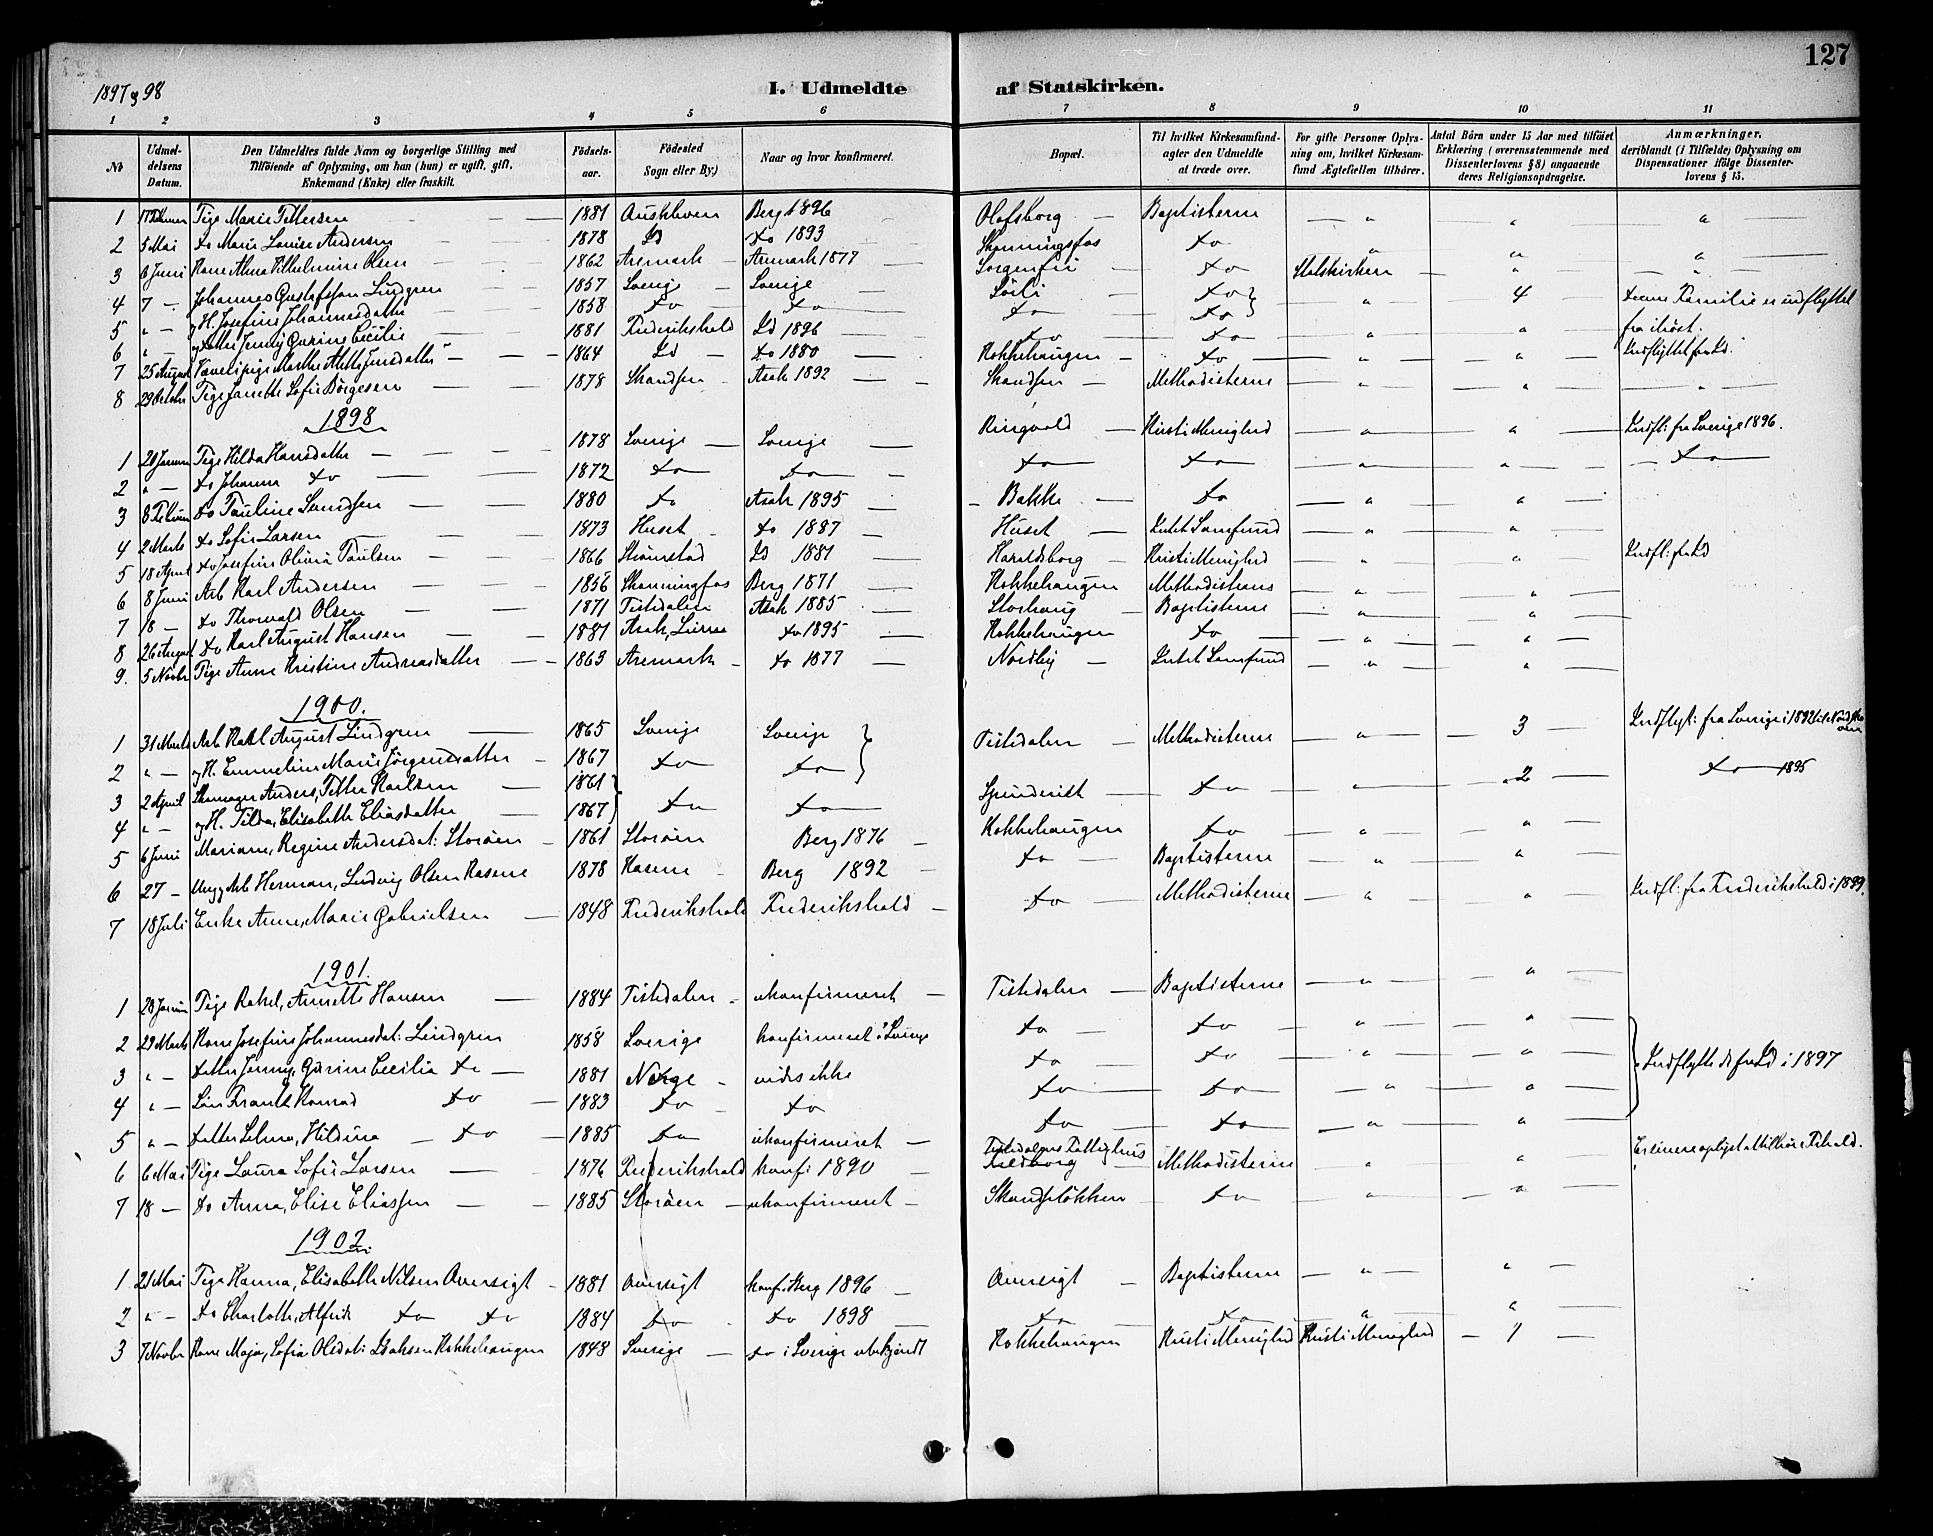 127
1897 & 98
I. Udmeldte af Statskirken.
1 2 3 4 5 6 7 8 9 10 11
No
Udmeldelsens Datum.
Den Udmeldtes fulde Navn og borgerlige Stilling med Tilføiende af Oplysning, om han (hun) er ugift, gift, Enkemand (Enke) eller fraskilt.
Fødselsaar.
Fødested Sogn eller By.)
Naar og hvor konfirmeret.
Bopæl.
Til hvilket Kirkesamfund agter den Udmeldte at træde over.
For gifte Personer Oplysning om, hvilket Kirkesamfund Ægtefællen tilhører.
Antal Børn under 15 Aar med tilføiet Erklæring (overensstemmende med Dissenterlovens § 8) angaaende deres Religionsopdragelse.
Anmærkninger, deriblandt (i Tilfælde) Oplysning om Dispensationer ifølge Dissenterlovens § 15.
1 Pige Marie Pettersen — 1881 Berg 1896 Olafsborg — Baptisterne — " — " — " —
2 5 Mai do Marie Louise Andersen — 1878 Id do 1893 Skanningsfos do " " "
3 6 Juni Kone Alma Vilhelmine Olsen — 1862 Aremark — Aremark 1877 — Sorgenfri — do Statskirken — " — " —
4 7 — Johannes Gustafsson Lindgren — 1857 Sverige — Sverige — — do } " 4 Denne Familie er indflyttet
5 " — og H. Josefine Johannesdatter — 1858 do do do — do } fra ihøst.
6 " — og Datter Jenny Qurine Cecilie 1881 Frederikshald Id 1896 — do — do — " — "
7 25 August Martha Mathea Jensdatter — 1864 Id — do 1880 — Kokkehaugen — do — " — " Indflyttet fra Id.
8 29 Octobr Pige Janette Sofie Børgesen — 1878 Skandsen — Asak 1892 — Skandsen — Methodisterne — " — " — " —
1898
1 20 Januar Pige Hilda Hansdatter — 1878 Sverige — Sverige — Ringvold — Kristi Menighed — " — " — Indfl: fra Sverige 1896.
2 " — do Johanna do — 1872 do do — do — do — " — " — do —
3 8 Februar do Pauline Lundsen — 1880 do Asak 1895 — Bakke — do — " — " —
4 2 Marts do Sofie Larsen — 1873 Huset — do 1887 — Huset — Luth Samfund — " — " —
5 18 April do Josefine Olivia Paulsen — 1866 Strømstad Id 1881 — Haraldsborg — Kristi Menighed — " — " Indfl: fra Id
6 8 Juni Arb Karl Andersen — 1856 Skanningfos Berg 1871 — Kokkehaugen — Methodisterne — " — " —
7 18 — do Thorvald Olsen — 1871 Tistedalen Asak 1885 — Storhaug — Baptisterne — " — " —
8 26 August do Karl August Hansen — 1881 Asak, do 1895 — Kokkehaugen do — " — " —
9. 5 Novbr Pige Anne Kristine Andreasdatter — 1863 Aremark — do 1877 — Nordby — Luth Samfund — " — " —
1900.
1 31 Marts Arb Karl August Lindgren — 1865 Sverige Sverige } Tistedalen — Methodisterne — " — 3 — Indflyt: fra Sverige i 1892
2 " — og H. Emmeline Marie Jørgensdatter — 1867 do do }
3 2 April Skomager Anders, Petter Karlsen — 1861 } do do — do — " — 2 — do — 1895
4 " — og H. Tilda, Elisabeth Eliasdatter — 1867 }
5 6 Juni Mariane, Regine Andersdat: Storøen — 1861 Storøen Berg 1876 — Kokkehaugen do — " — " —
6 27 — Ung Arb Herman, Ludvig Olsen Kasene 1878 Kasene — Berg 1892 — do — Baptisterne — " — " —
7 18 Juli Enke Anne, Marie Gabrielsen — 1848 Frederikshald Frederikshald — do — Methodisterne — " — " Indfl: fra Frederikshald i 1899.
1901.
1 28 Januar Pige Rakel, Annette Hansen — 1884 Tistedalen — ukonfirmeret — Tistedalen — Baptisterne — " — " —
2 29 Marts Kone Josefine Johannesdat: Lindgren 1858 Sverige konfirmeret i Sverige do — do — " — " —
3 " — Datter Jenny, Qurine Cecilia do — 1881 Norge — vides ikke do — do — " — " — } Indflyttede fra Id i 1897
4 " — Søn Frantz Konrad do — 1883 do — do do — do — " — " —
5 " — Datter Selma, Hildina — do — 1885 do — ukonfirmeret — do — do — " — " —
6 6 Mai Pige Laura Sofie Larsen — 1876 Frederikshald konfi 1890 — Tistedalens Fattighus Methodisterne " — " —
7 18 — do Anna, Elise Eliassen — 1885 Storøen — ukonfirmeret — Skandseløkken — do — " — " —
1902
1 21 Mai Pige Hanna, Elisabeth Nilsen Oversigt — 1881 Oversigt konf: Berg 1896 — Oversigt — Baptisterne — " — " —
2 " — do Charlotte, Alfride do do 1884 do — do 1898 — do do " "
3 7 Novbr Kone Maja, Sofia Olsdat: Isaksen Kokkehaugen 1848 Sverige — do i Sverige ubekjendt Kokkehaugen Kristi Menighed Kristi Menighed — 1 —